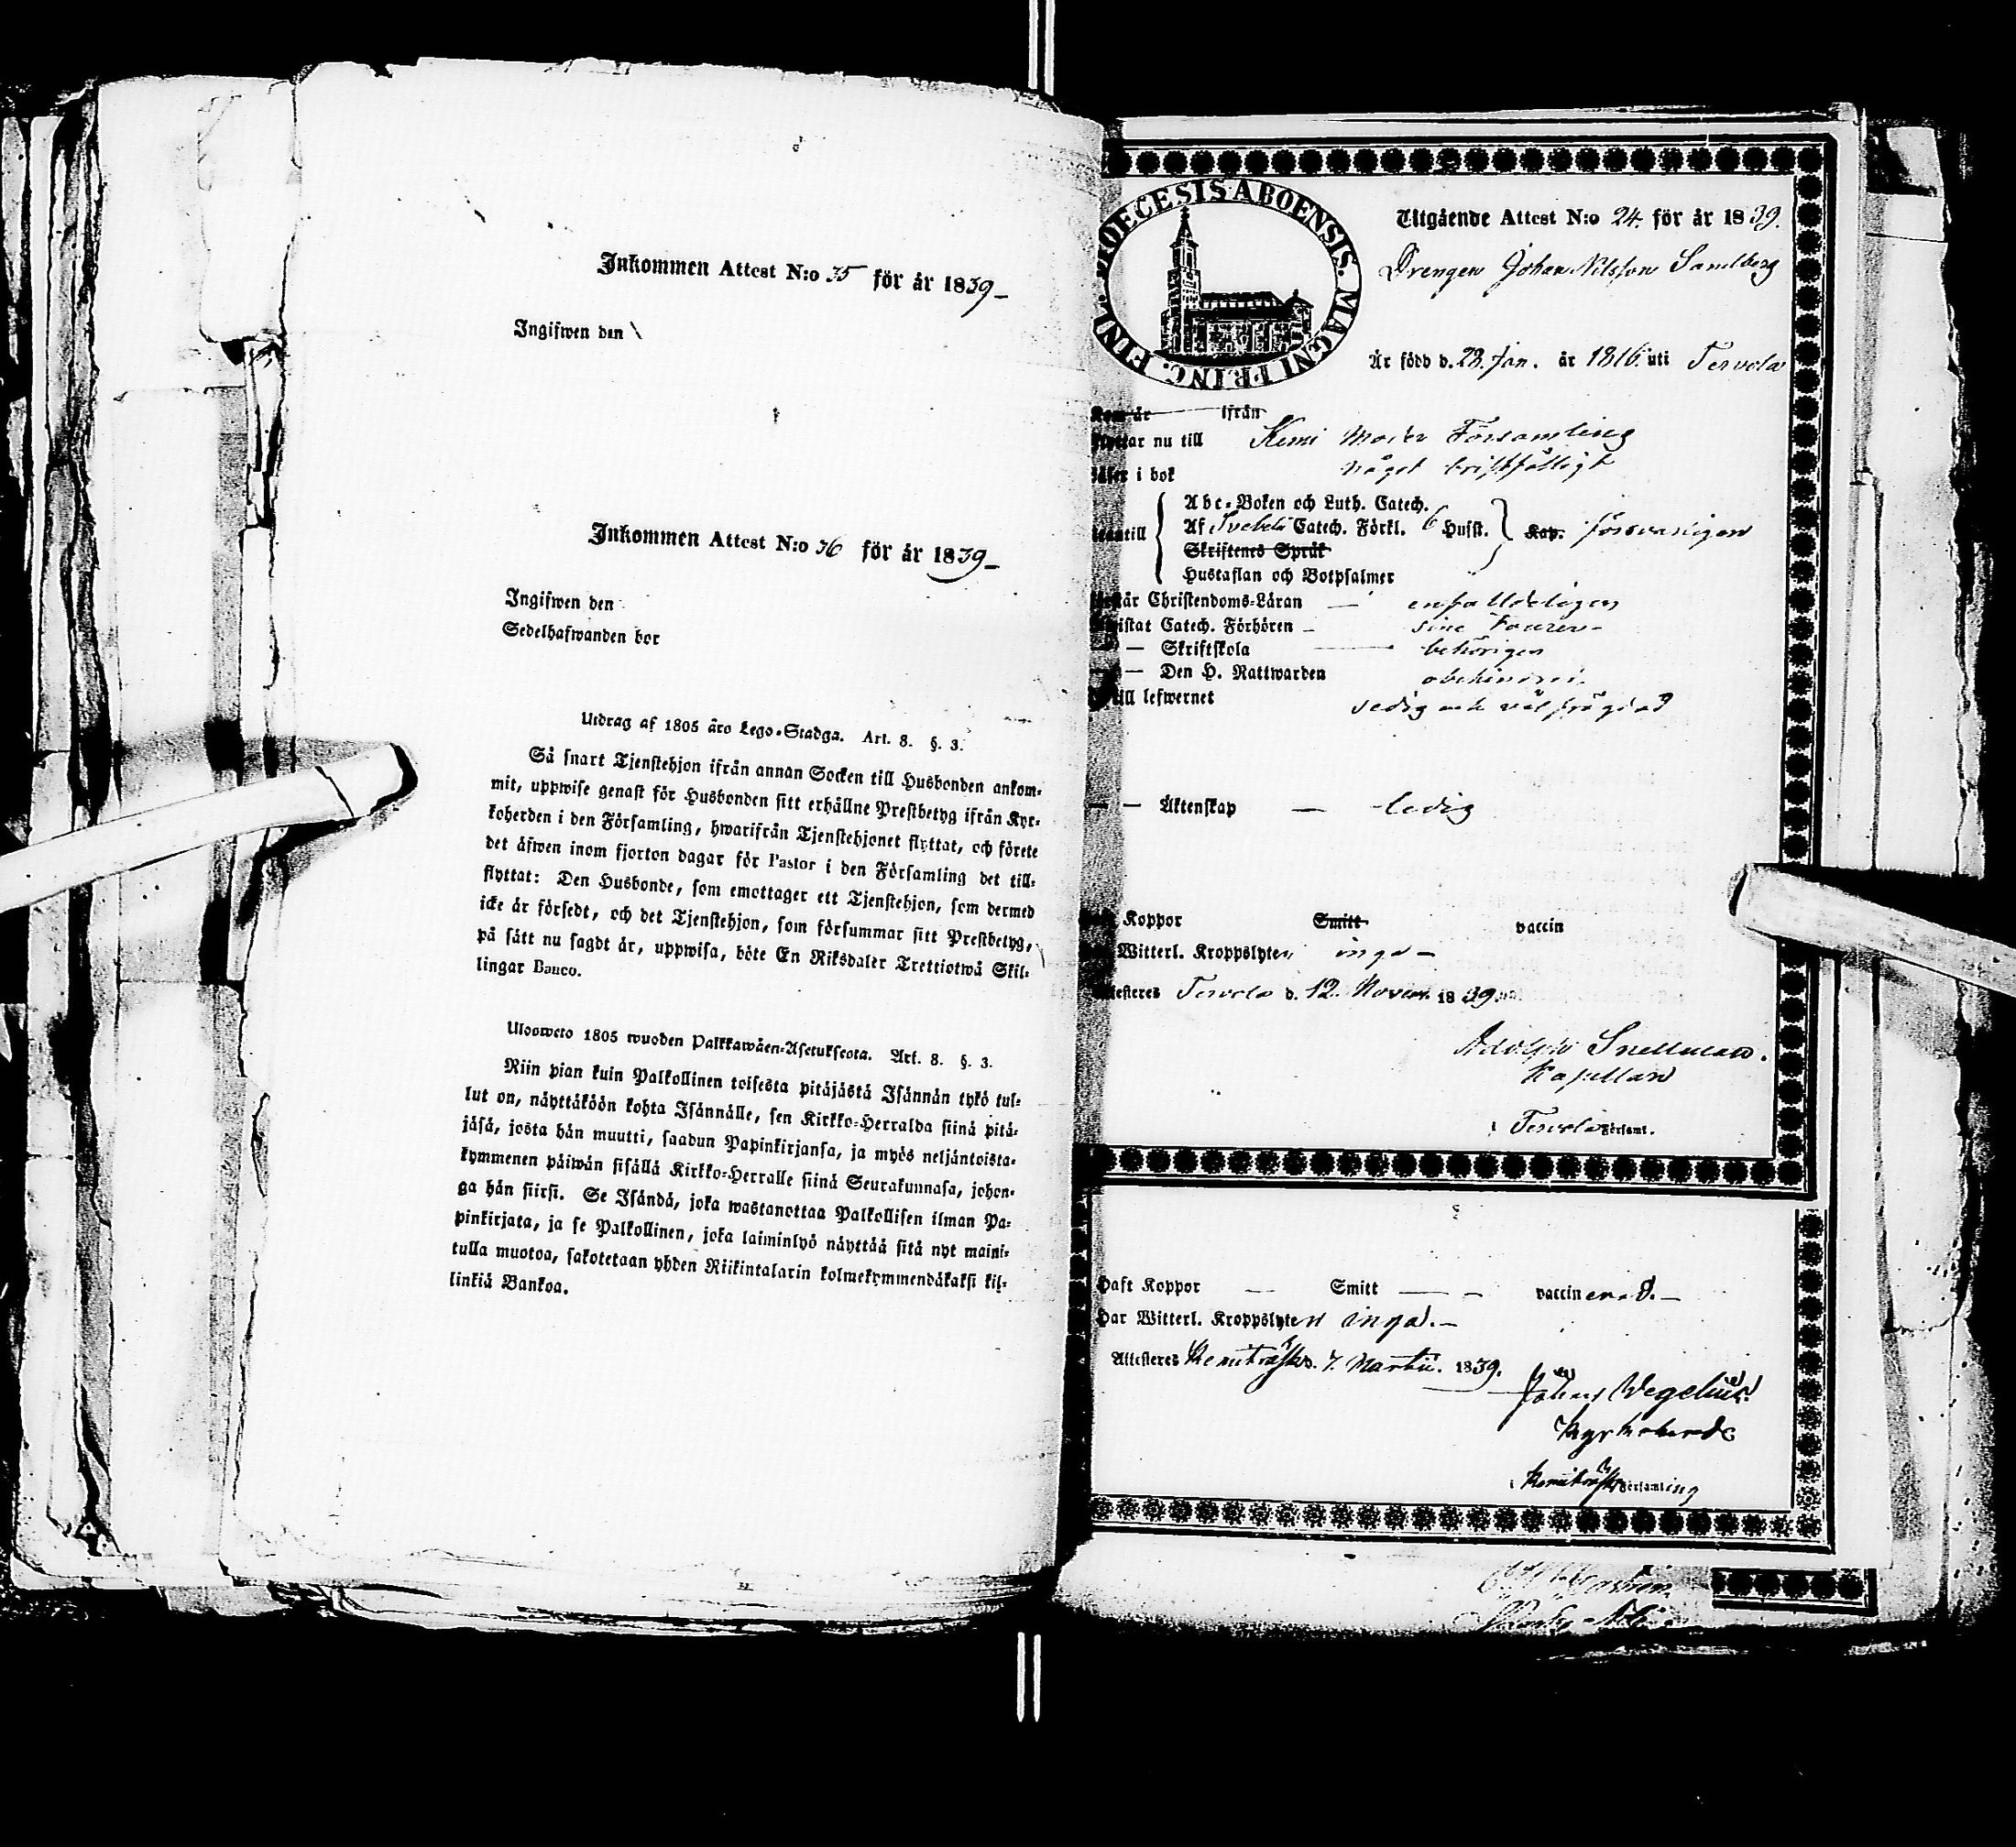 Inkommen Attest N:o 35 för år 1839
Ingifwen den
Inkommen Attest N:o 36 för år 1839
Ingifwen den
Sedelhafwanden bor
Utdrag af 1805 års Lego-Stadga. Art. 8. §. 3.
Så snart Tjenstehjon ifrån annan Socken till Husbonden ankom-
mit, uppwise genast för Husbonden sitt erhållne Prestbetyg ifrån Kyr-
koherden i den Församling, hwarifrån Tjenstehjonet flyttat, och förete
det äfwen inom fjorton dagar för Pastor i den Församling det till-
flyttat: Den Husbonde, som emottager ett Tjenstehjon, som dermed
icke är försedt, och det Tjenstehjon, som försummar sitt Prestbetyg,
på sätt nu sagdt är, uppwisa, böte En Riksdaler Trettiotwå Skil-
lingar Banco.
Ulosweto 1805 wuoden Palkkawäen-Asetuksesta. Art. 8. §. 3.
Niin pian kuin Palkollinen toisesta pitäjästä Isännän tykö tul-
lut on, näyttäköön kohta Isännälle, sen Kirkko-Herralda siinä pitä-
jäsä, josta hän muutti, saadun Papinkirjansa, ja myös neljäntoista-
kymmenen päiwän sisällä Kirkko-Herralle siinä Seurakunnasa, johon-
ga hän siirsi. Se Isändä, joka wastanottaa Palkollisen ilman Pa-
pinkirjata, ja se Palkollinen, joka laiminlyö näyttää sitä nyt maini-
tulla muotoa, sakotetaan yhden Riikintalarin kolmekymmendäkaksi kil-
linkiä Bankoa.
DIOECESIS ABOENSIS. MAGNI PRINC. FINL.
Utgående Attest N:o 24. för år 1839.
Drengen Johan Nilsson Sandberg
Är född d. 28. Jan. år 1816 uti Tervola
Kom år ifrån
Flyttar nu till Kemi Moder Församling
Läser i bok något bristfälligt
Abc-Boken och Luth. Catech.
utantill Af Svebelii Catech. Förkl. 6 Hufst. Kap. försvarligen
Skriftenes Språk
Hustaflan och Botpsalmer
Förstår Christendoms-Läran enfalldeligen
Bewistat Catech. Förhören sine
— Skriftskola behörigen
— Den H. Nattwarden
till lefwernet sedig och väl frägdad
— — Äktenskap — ledig
Haft Koppor Smitt vaccin
Witterl. Kroppslyten inga
Attesteres Tervola d. 12. Novem. 1839.
Adolph Snellman.
Kapellan
i Tervola Församl.
Haft Koppor — Smitt — — vaccinerad.
Har Witterl. Kroppslyten inga.
Attesteres Kemiträsk d. 7. Martii. 1839.
Johan Wegelius
Kyrkoherde
i Kemiträsk Församling